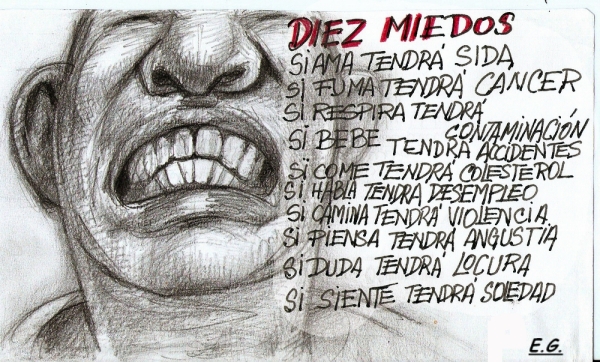 DIEZ MIEDOS
SI AMA TENDRÁ SIDA
SI FUMA TENDRÁ CANCER
SI RESPIRA TENDRÁ
CONTAMINACIÓN
SI BEBE TENDRÁ ACCIDENTES
SI COME TENDRÁ COLESTEROL
SI HABLA TENDRÁ DESEMPLEO
SI CAMINA TENDRÁ VIOLENCIA
SI PIENSA TENDRÁ ANGUSTIA
SI DUDA TENDRÁ LOCURA
SI SIENTE TENDRÁ SOLEDAD
E.G.